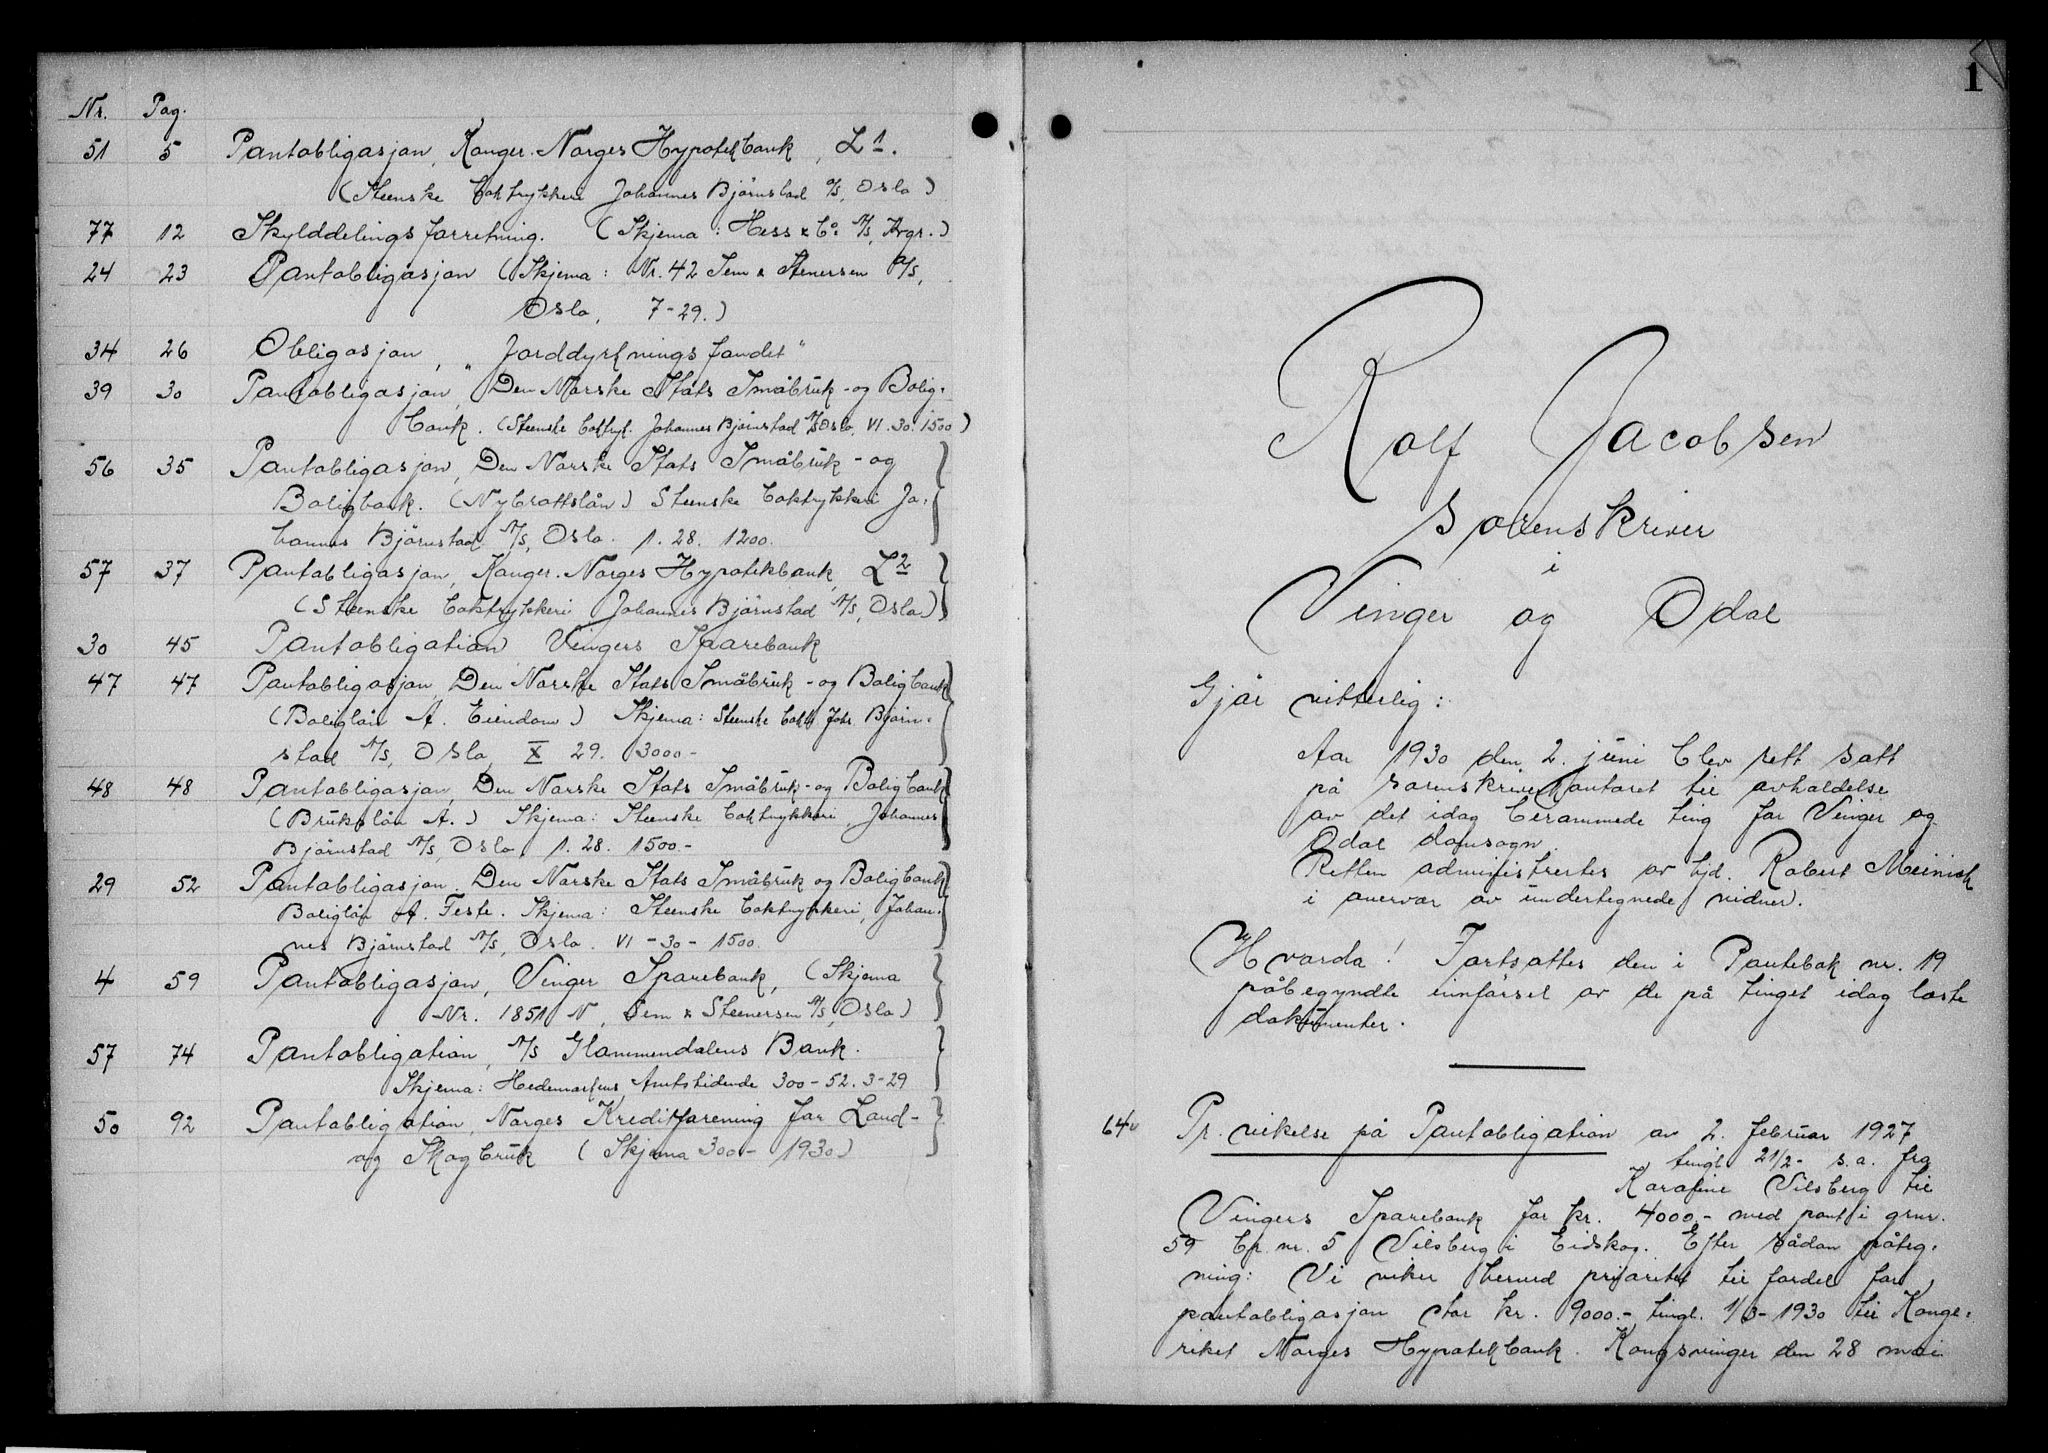 Nr. Pag.
51 5 Pantobligasjon, Konger. Norges Hypotekbank, L 1.
(Steenske boktrykkeri Johannes Bjørnstad A/S, Oslo)
77 12 Skylddelingsforretning. (Skjema: Hess & Co. A/S, Kvgr.)
24 23 Pantobligasjon (Skjema: Nr. 42 Sem & Stenersen A/S,
Oslo, 7-29.)
34 26 Obligasjon, "Jorddyrkningsfondet"
39 30 Pantobligasjon, Den Norske Stats Småbruk- og Bolig-
bank. (Steenske boktryk. Johannes Bjørnstad A/S Oslo. VI. 30. 1500)
56 35 Pantobligasjon, Den Norske Stats Småbruk- og
Boligbank. (Nybrottslån) Steenske boktrykkeri Jo-
hannes Bjørnstad A/S, Oslo. 1. 28. 1200.
57 37 Pantobligasjon, Konger. Norges Hypotekbank, L 2
(Steenske boktrykkeri Johannes Bjørnstad A/S, Oslo)
30 45 Pantobligation Vingers Sparebank
47 47 Pantobligasjon, Den Norske Stats Småbruk- og Boligbank
(Boliglån A. Eiendom) Skjema: Steenske boktr. Johs. Bjørn-
stad A/S, Oslo, X 29. 3000-
48 48 Pantobligasjon, Den Norske Stats Småbruk- og Boligbank
(Brukslån A.) Skjema: Steenske boktrykkeri, Johannes
Bjørnstad A/S, Oslo, 1. 28. 1500.-
29 52 Pantobligasjon. Den Norske Stats Småbruk og Boligbank
Boliglån A. Feste. Skjema: Steenske boktrykkeri, Johan-
nes Bjørnstad A/S, Oslo. VI - 30 - 1500.
4 59 Pantobligasjon, Vinger Sparebank, (Skjema
Nr. 1851 N, Sem & Steenersen A/S, Oslo)
57 74 Pantobligation, A/S Glommendalens Bank.
Skjema: Hedemarkens Amtstidende 300-52. 3-29
50 92 Pantobligation, Norges Kreditforening for Land-
og Skogbruk (Skjema 300- 1930)
1
Rolf Jacobsen
sorenskriver
i
Vinger og Odal
Gjør vitterlig:
Aar 1930 den 2. juni blev rett satt
på sorenskriverkontoret til avholdelse
av det idag berammede ting for Vinger og
Odal domsogn.
Retten administrertes av hjd. Robert Meinich
i overvær av undertegnede vidner.
Hvorda! Fortsattes den i Pantebok nr. 19
påbegyndte innførsel av de på tinget idag læste
dokumenter.
64. Pr. vikelse på Pantobligation av 2. februar 1927
tingl. 21/2- s.a. fra
Karafine Vilsberg til
Vingers Sparebank for kr. 4000.- med pant i grnr.
59 br. nr. 5 Vilsberg i Eidskog. Efter sådan påteg-
ning: Vi viker herved prioritet til fordel for
pantobligasjon stor kr. 9000.- tingl. 1/3-1930 til Konge-
riket Norges Hypotekbank. Kongsvinger den 28 mai